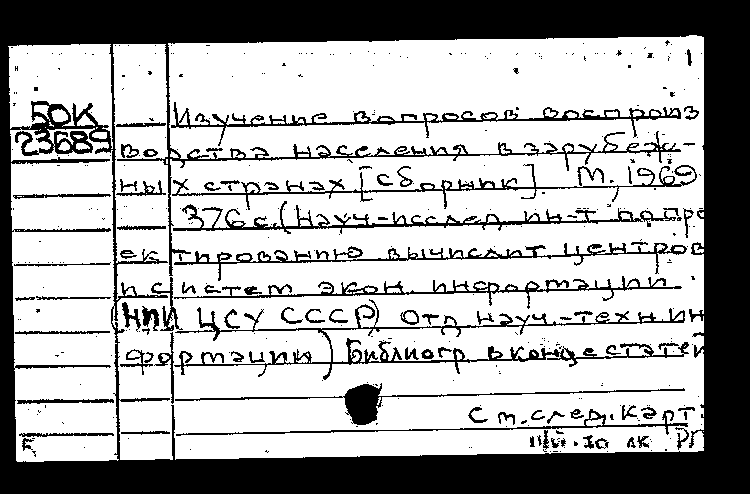 1
50К Изучение вопросов воспроиз
23689 водства населения в зарубеж-
ных странах [сборник]. М., 1969
376 с. (Науч.-исслед. ин-т по про
ектированию вычислит. центров
и систем экон. информации
(НИИ ЦСУ СССР) Отд науч.-техн ин
формации) Библиогр в конце статей
См. след. карт